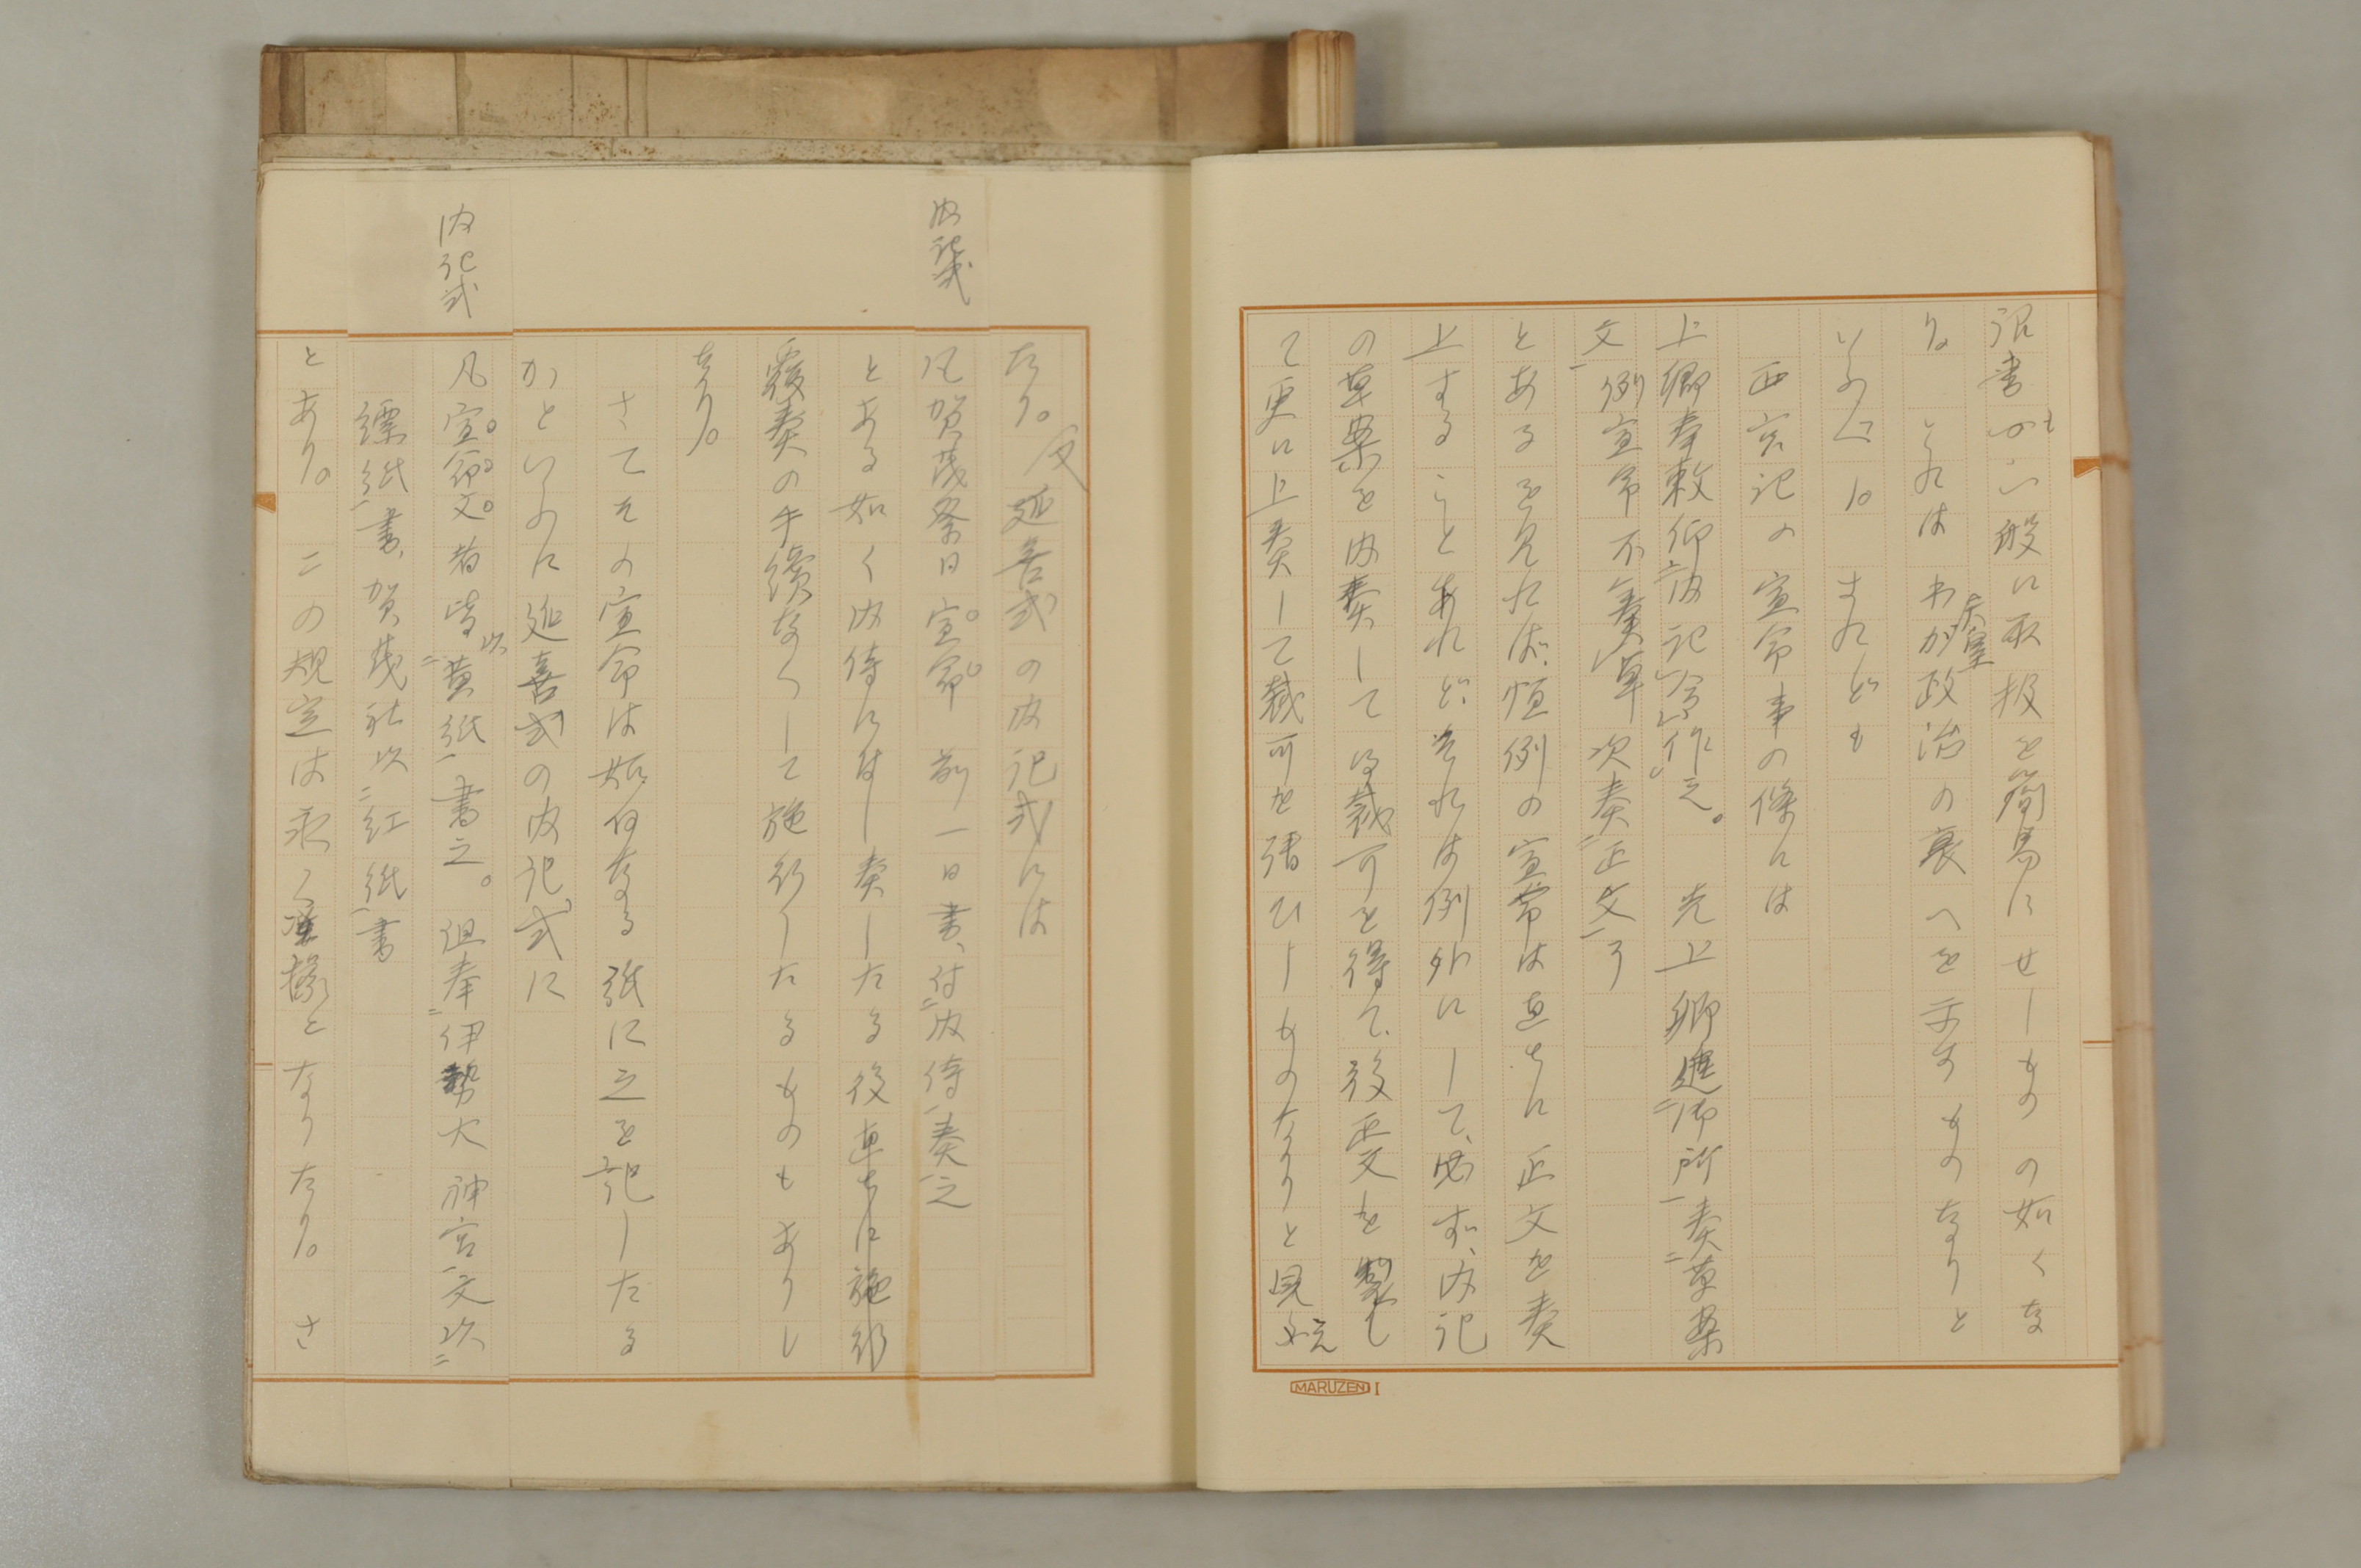 詔書も一般に取扱を簡易にせしものの如くな
り。これはわが皇室政治の衰へを示すものなりと
いふべし。されども
西宮記の宣命事の條には
上卿奉敕仰二内記一令レ作レ之。 先上卿進二御所一奏二草案
文一例宣命不レ奏レ草 次奏二正文一了
とあるを見れば、恒例の宣命は直ちに正文を奏
上することあれど、それは例外にして、必ず、内記
の草案を内奏して御裁可を得て、後正文を製し
て更に上奏して裁可を請ひしものなりと見ゆ
MARUZEN I
たり。又延喜式の内記式には
内記式
凡賀茂祭日宣命 前一日書、付二内侍一奏之
とある如く内侍に付し奏したる後直ちに施行
覆奏の手續なくして施行したるものもありし
なり。
さてその宣命は如何なる紙に之を記したる
かといふに延喜式の内記式に
内記式
凡宣命文者皆以二黄紙一書之。但奉二伊勢大神宮一文以二
縹紙一書、賀茂社以二紅紙一書
とあり。この規定は永く準據となりたり。さ